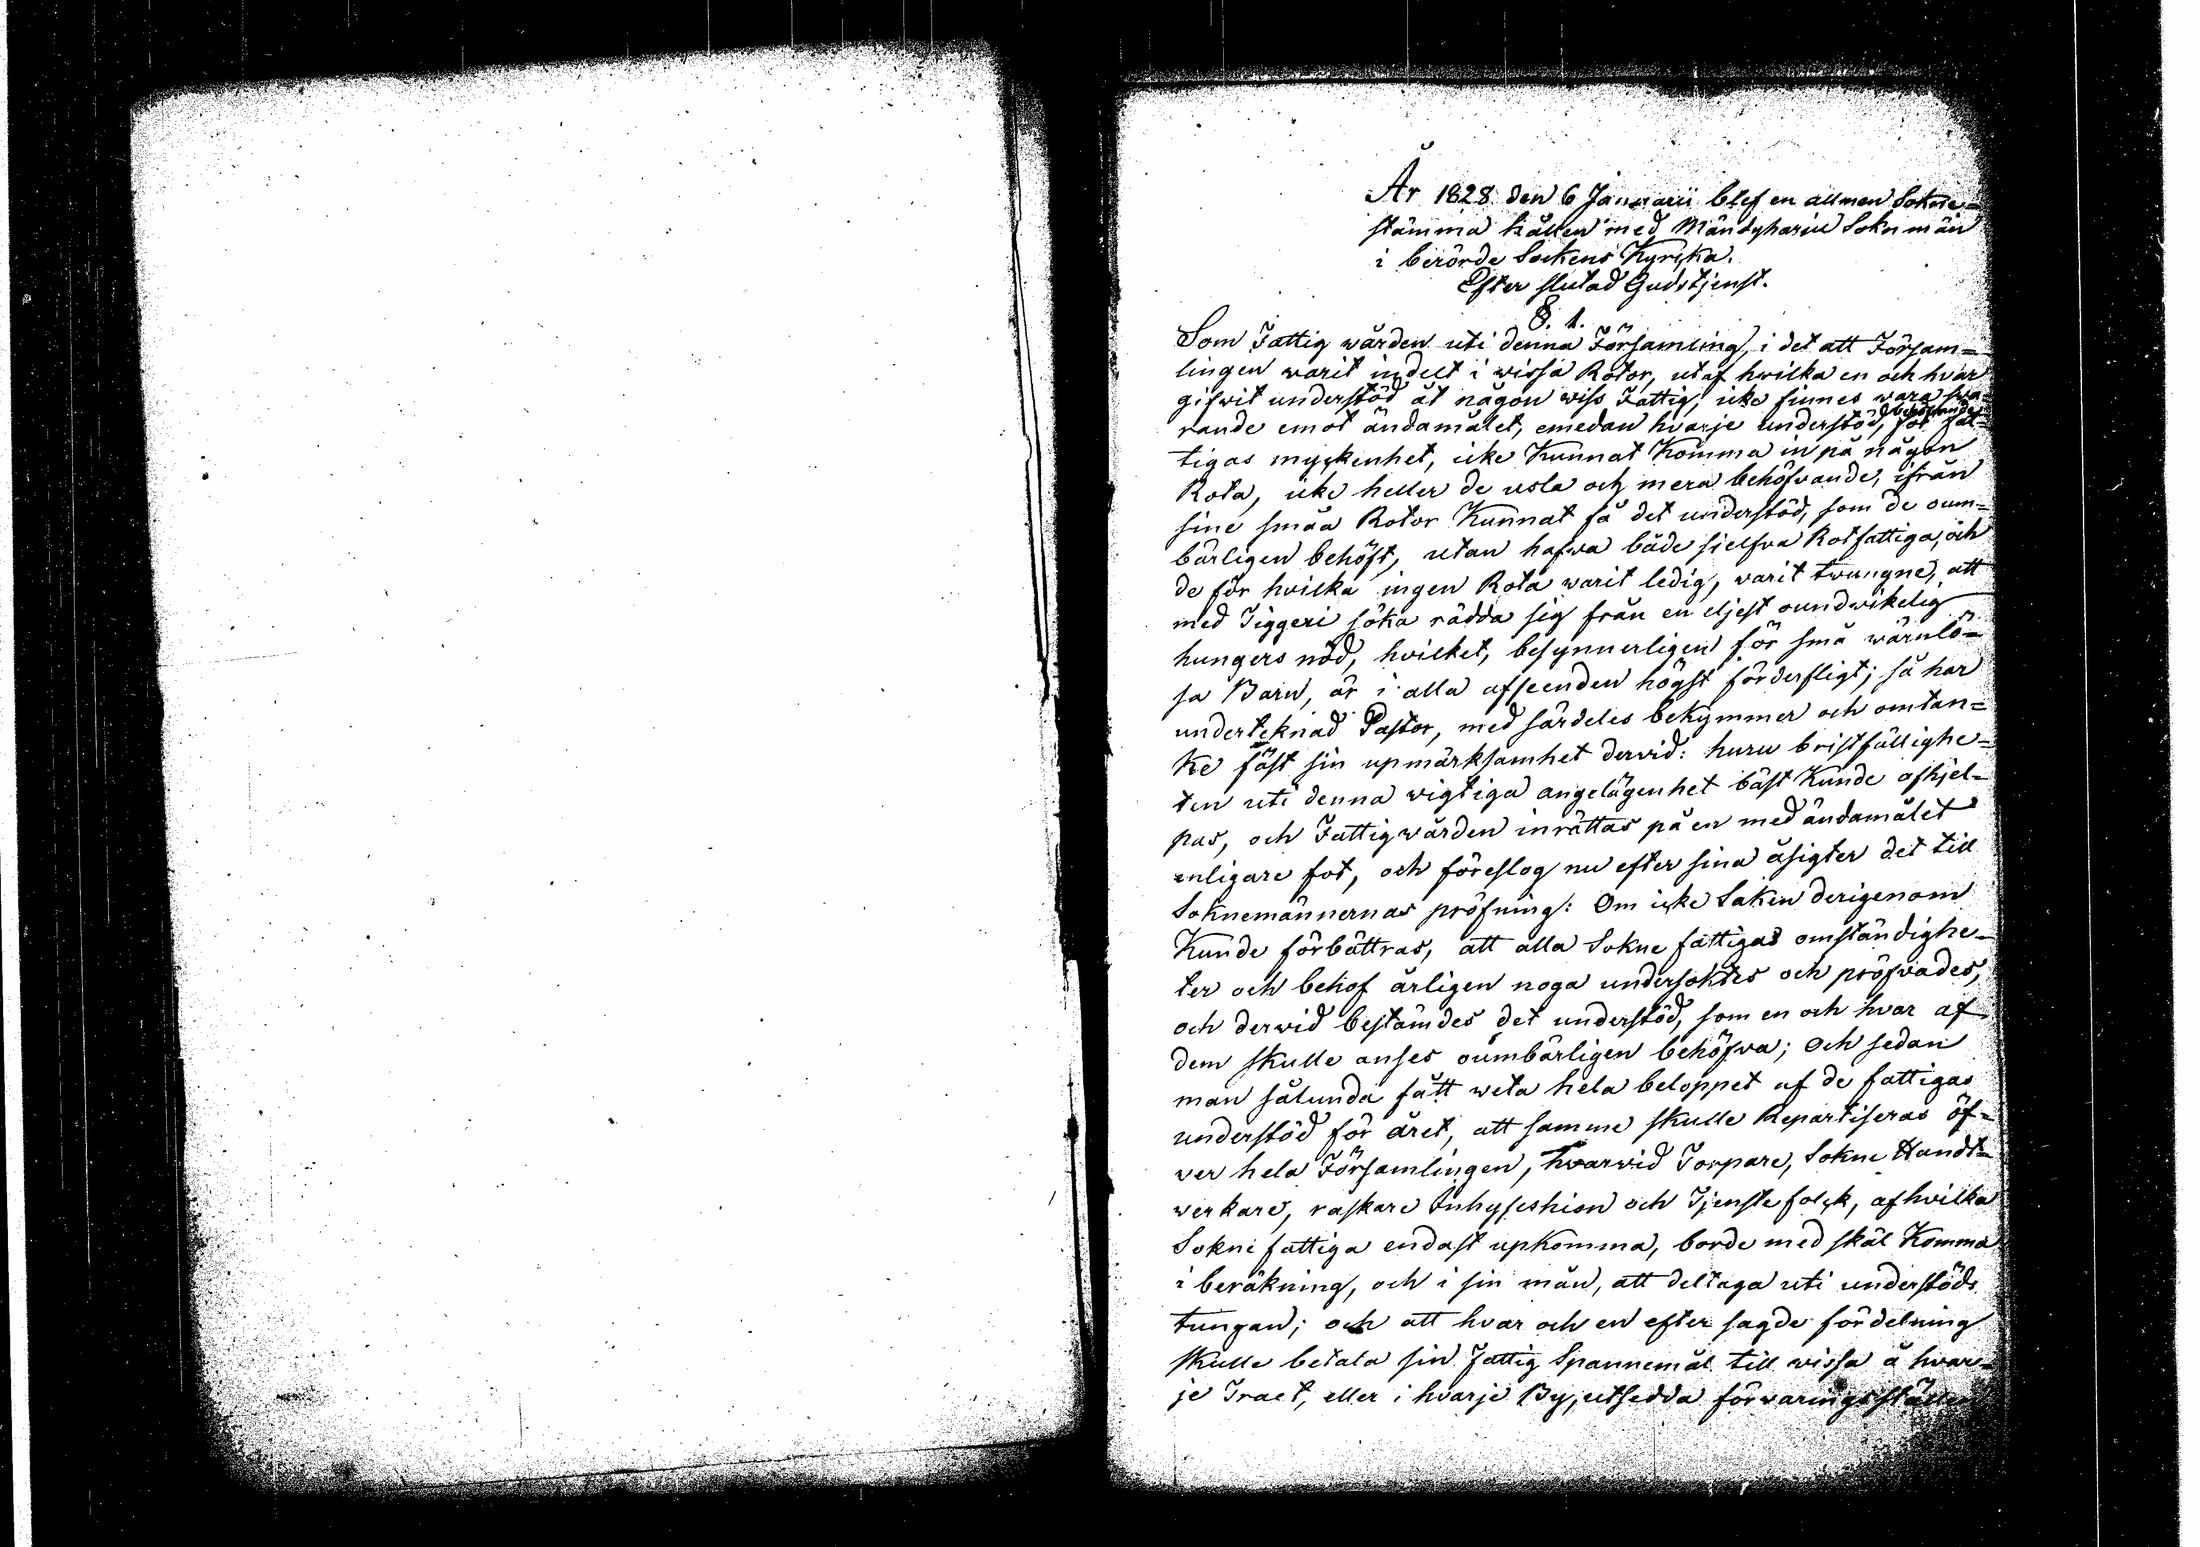 År 1828 den 6 Januarii blef en allmen Sokne=
stämma hållen med Mändyharju Soknmän
i berörde Sockens Kyrcka.
Efter slutad Gudstjenst.
§. 1.
Som Fattig wården uti denna Församling, i det att Försam=
lingen warit indelt i wissa Rotor, utaf hwilka en och hvar
gifvit understöd åt någon wiss Fattig, icke finnes wara swa=
rande emot ändamålet, emedan hvarje understöd behöfwande, för fat=
tigas myckenhet, icke Kunnat Komma in på någon
Rota, icke heller de usla och mera behöfvande, ifrån
sine smäa Rotor Kunnat få det understöd, som de oum=
bärligen behöft, utan hafwa både sielfva Rotfattiga, och
de för hvilka ingen Rota warit ledig, varit twungne, att
med Tiggeri söka rädda sig från en eljest oundwikelig
hungers nöd, hvilket, besynnerligen för små wärnlö=
sa Barn, är i alla afseenden högst förderfligt; så har
underteknad Pastor, med särdeles bekymmer och omtan=
ke fäst sin upmärksamhet derwid: huru bristfällighe=
ten uti denna wigtiga angelägenhet bäst Kunde afhjel=
pas, och Fattigwården inrättas på en med ändamålet
enligare fot, och föreslog nu efter sina åsigter det till
Soknemännernas pröfning: Om icke Saken derigenom
Kunde förbättras, att alla Sokne fattigas omständighe=
ter och behof årligen noga undersoktes och pröfvades,
och derwid bestämdes det understöd, som en och hvar af
dem skulle anses oumbärligen behöfva; Och sedan
man sålunda fått weta hela beloppet af de fattigas
understöd för året, att samme skulle Repartiseras öf=
ver hela Församlingen, hvarwid Torpare, Sokne Handt=
werkare, raskare Inhyseshion och Tjenstefolck, af hvilka
Sokne fattiga endast upkomma, borde med skäl Komma
i beräkning, och i sin mån, att deltaga uti understöds
tungan; och att hvar och en efter sagde fördelning
skulle betala sin Fattig Spannemål till wissa å hvar=
je Tract, eller i hvarje By, utsedda förwaringsställen